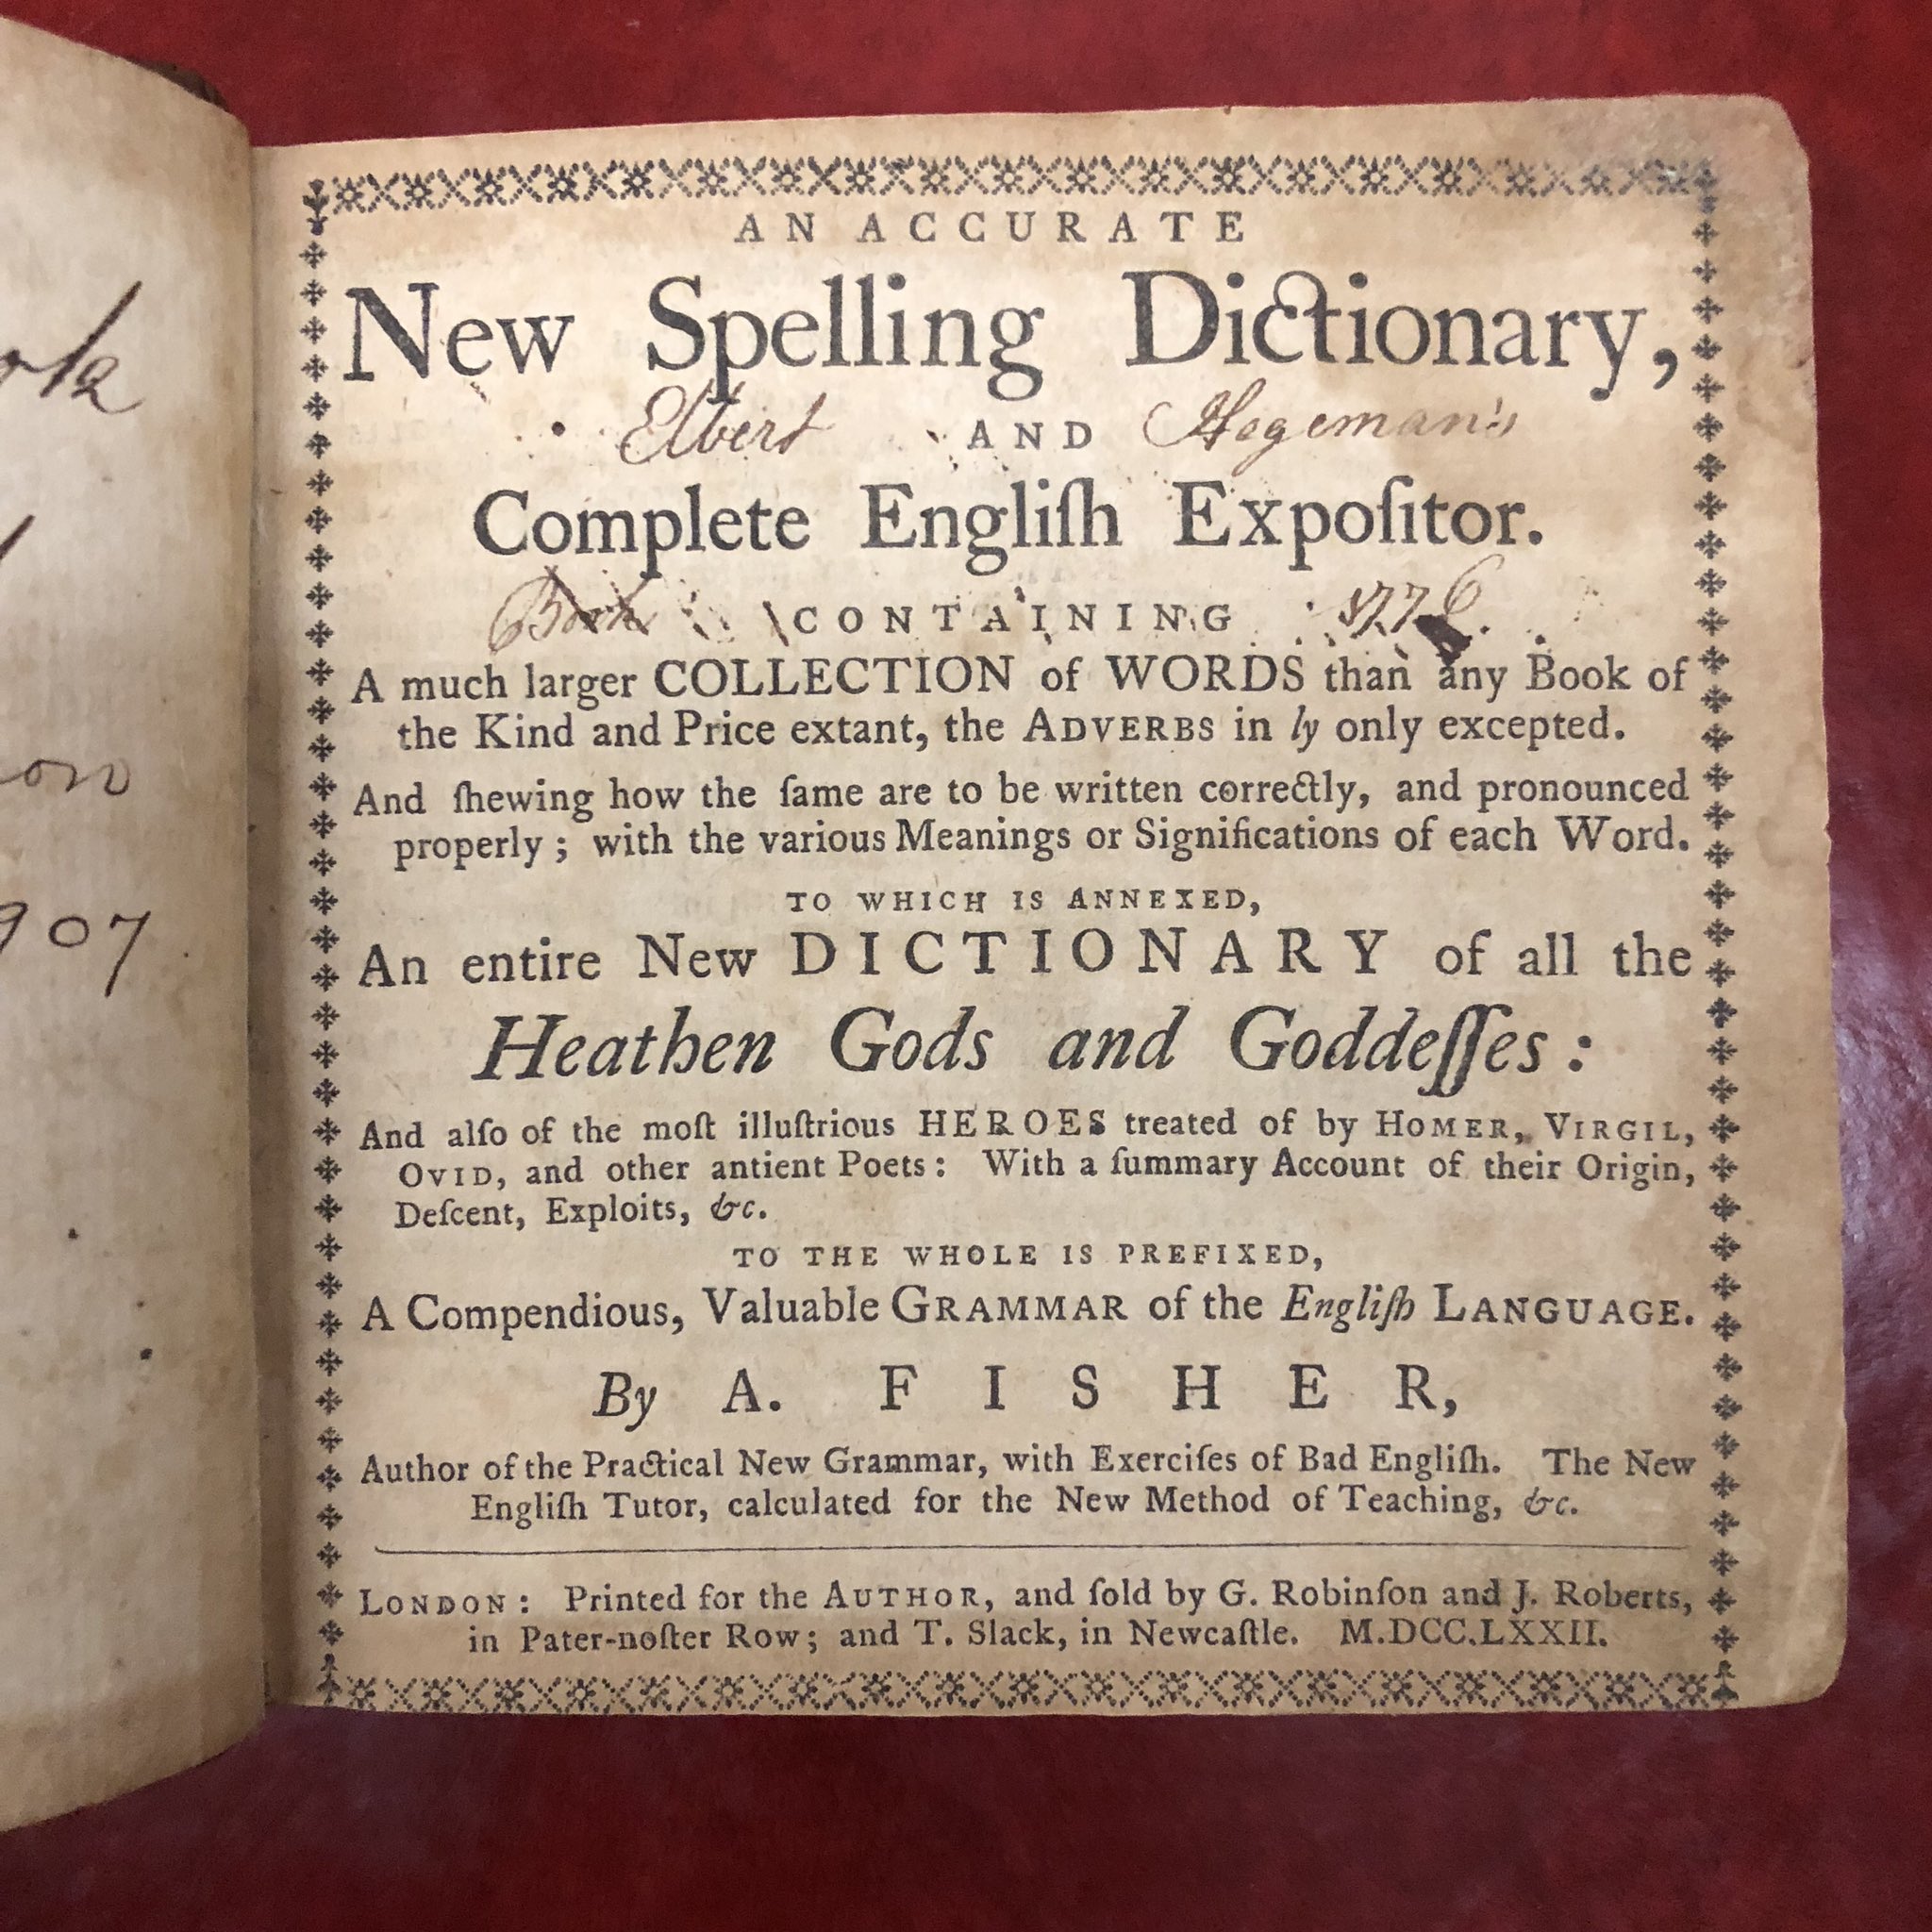 907
AN ACCURATE
New Spelling Dictionary,
Elbert AND Hegeman's
Complete Engliſh Expoſitor.
Book CONTAINING 1776.
A much larger COLLECTION of WORDS than any Book of
the Kind and Price extant, the ADVERBS in ly only excepted.
And ſhewing how the ſame are to be written correctly, and pronounced
properly; with the various Meanings or Significations of each Word.
TO WHICH IS ANNEXED,
An entire New DICTIONARY of all the
Heathen Gods and Goddeſſes:
And alſo of the moſt illuſtrious HEROES treated of by HOMER, VIRGIL,
OVID, and other antient Poets: With a ſummary Account of their Origin,
Deſcent, Exploits, &c.
TO THE WHOLE IS PREFIXED,
A Compendious, Valuable GRAMMAR of the Engliſh LANGUAGE.
By A. FISHER,
Author of the Practical New Grammar, with Exerciſes of Bad Engliſh. The New
Engliſh Tutor, calculated for the New Method of Teaching, &c.
LONDON: Printed for the AUTHOR, and ſold by G. Robinſon and J. Roberts,
in Pater-noſter Row; and T. Slack, in Newcaſtle. M.DCC.LXXII.